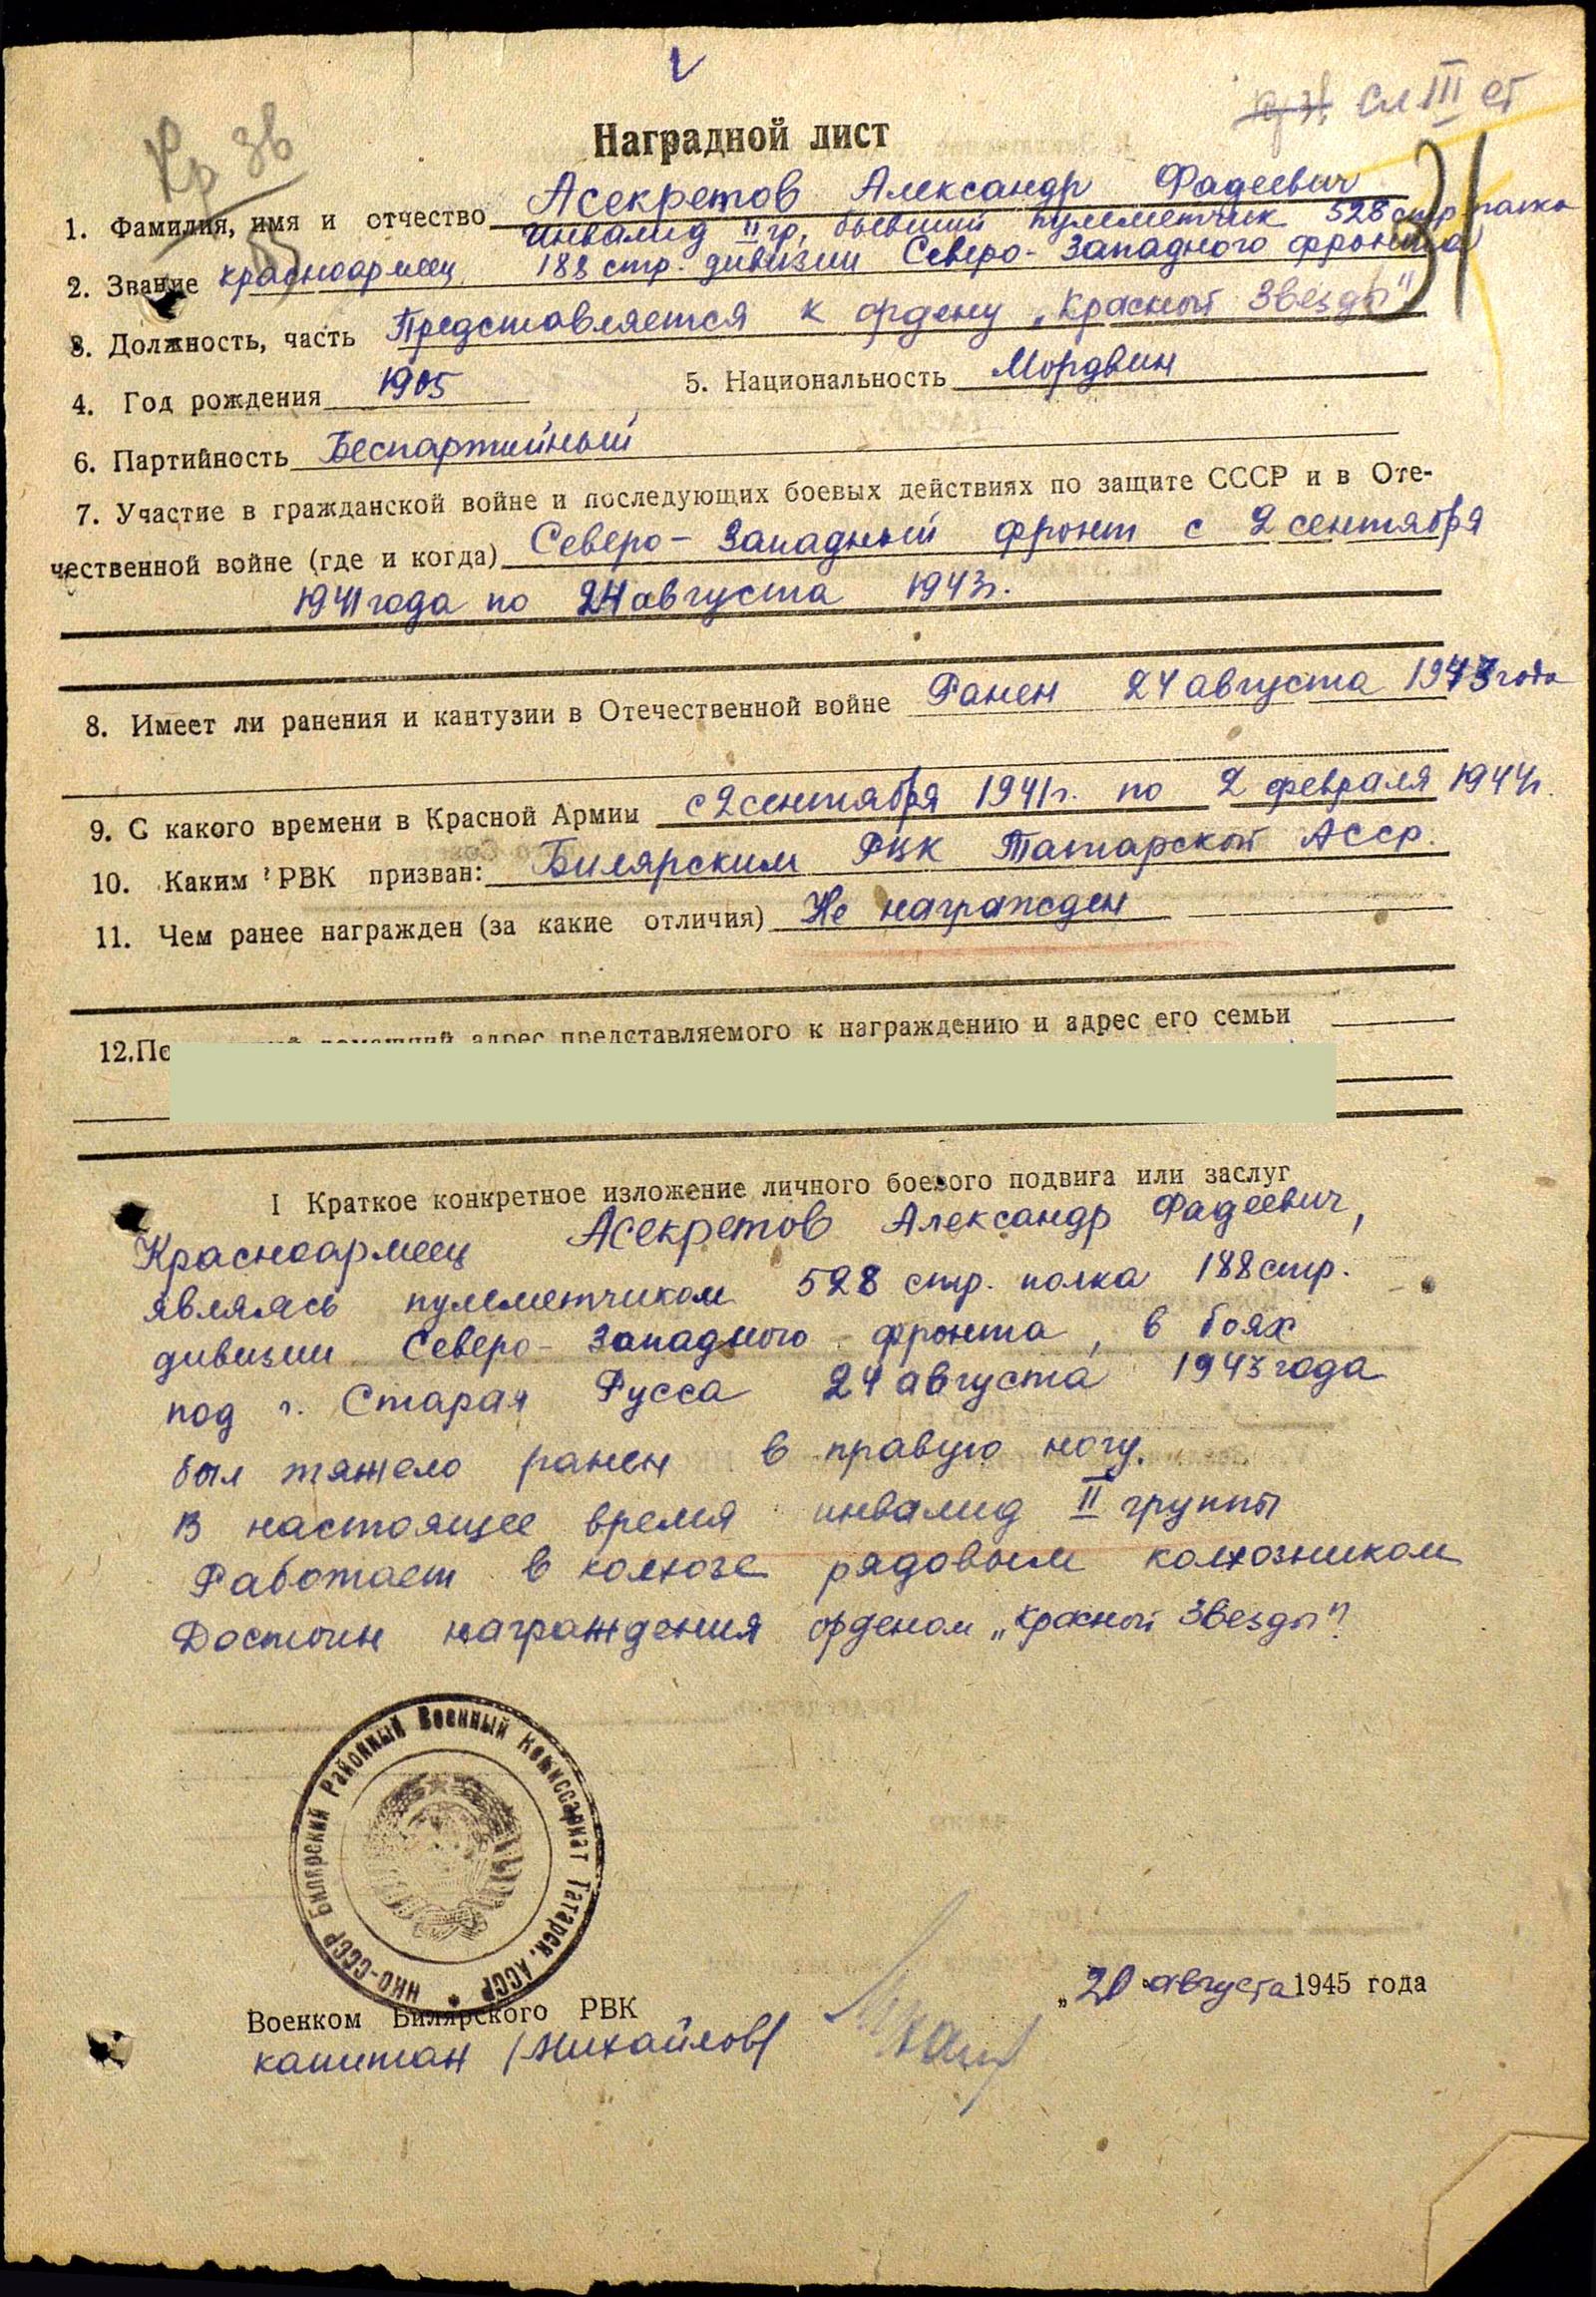 V
Кр Зв
сл III ст
31
Наградной лист
1. Фамилия, имя и отчество Асекретов Александр Фадеевич
инвалид II гр, бывший пулеметчик 528 стр полка
2. Звание красноармеец 188 стр. дивизии Северо-Западного фронта
3. Должность, часть Представляется к ордену „Красной Звезды"
4. Год рождения 1905 5. Национальность Мордвин
6. Партийность Беспартийный
7. Участие в гражданской войне и последующих боевых действиях по защите СССР и в Оте-
чественной войне (где и когда) Северо-Западный фронт с 2 сентября
1941 года по 24 августа 1943г.
8. Имеет ли ранения и кантузии в Отечественной войне Ранен 24 августа 1943 года
9. С какого времени в Красной Армии с 2 сентября 1941г. по 2 февраля 1944г.
10. Каким РВК призван: Билярским РВК Татарской АССР.
11. Чем ранее награжден (за какие отличия) Не награжден
12. адрес представляемого к награждению и адрес его семьи
I Краткое конкретное изложение личного боевого подвига или заслуг
Красноармеец Асекретов Александр Фадеевич,
являясь пулеметчиком 528 стр. полка 188 стр.
дивизии Северо-Западного фронта, в боях
под г. Старая Русса 24 августа 1943 года
был тяжело ранен в правую ногу.
В настоящее время инвалид II группы
Работает в колхозе рядовым колхозником
Достоин награждения орденом „Красной Звезды".
НКО-СССР Билярский Районный Военный Комиссариат Татарск. АССР
Военком Билярского РВК
капитан /Михайлов/
„20 августа 1945 года